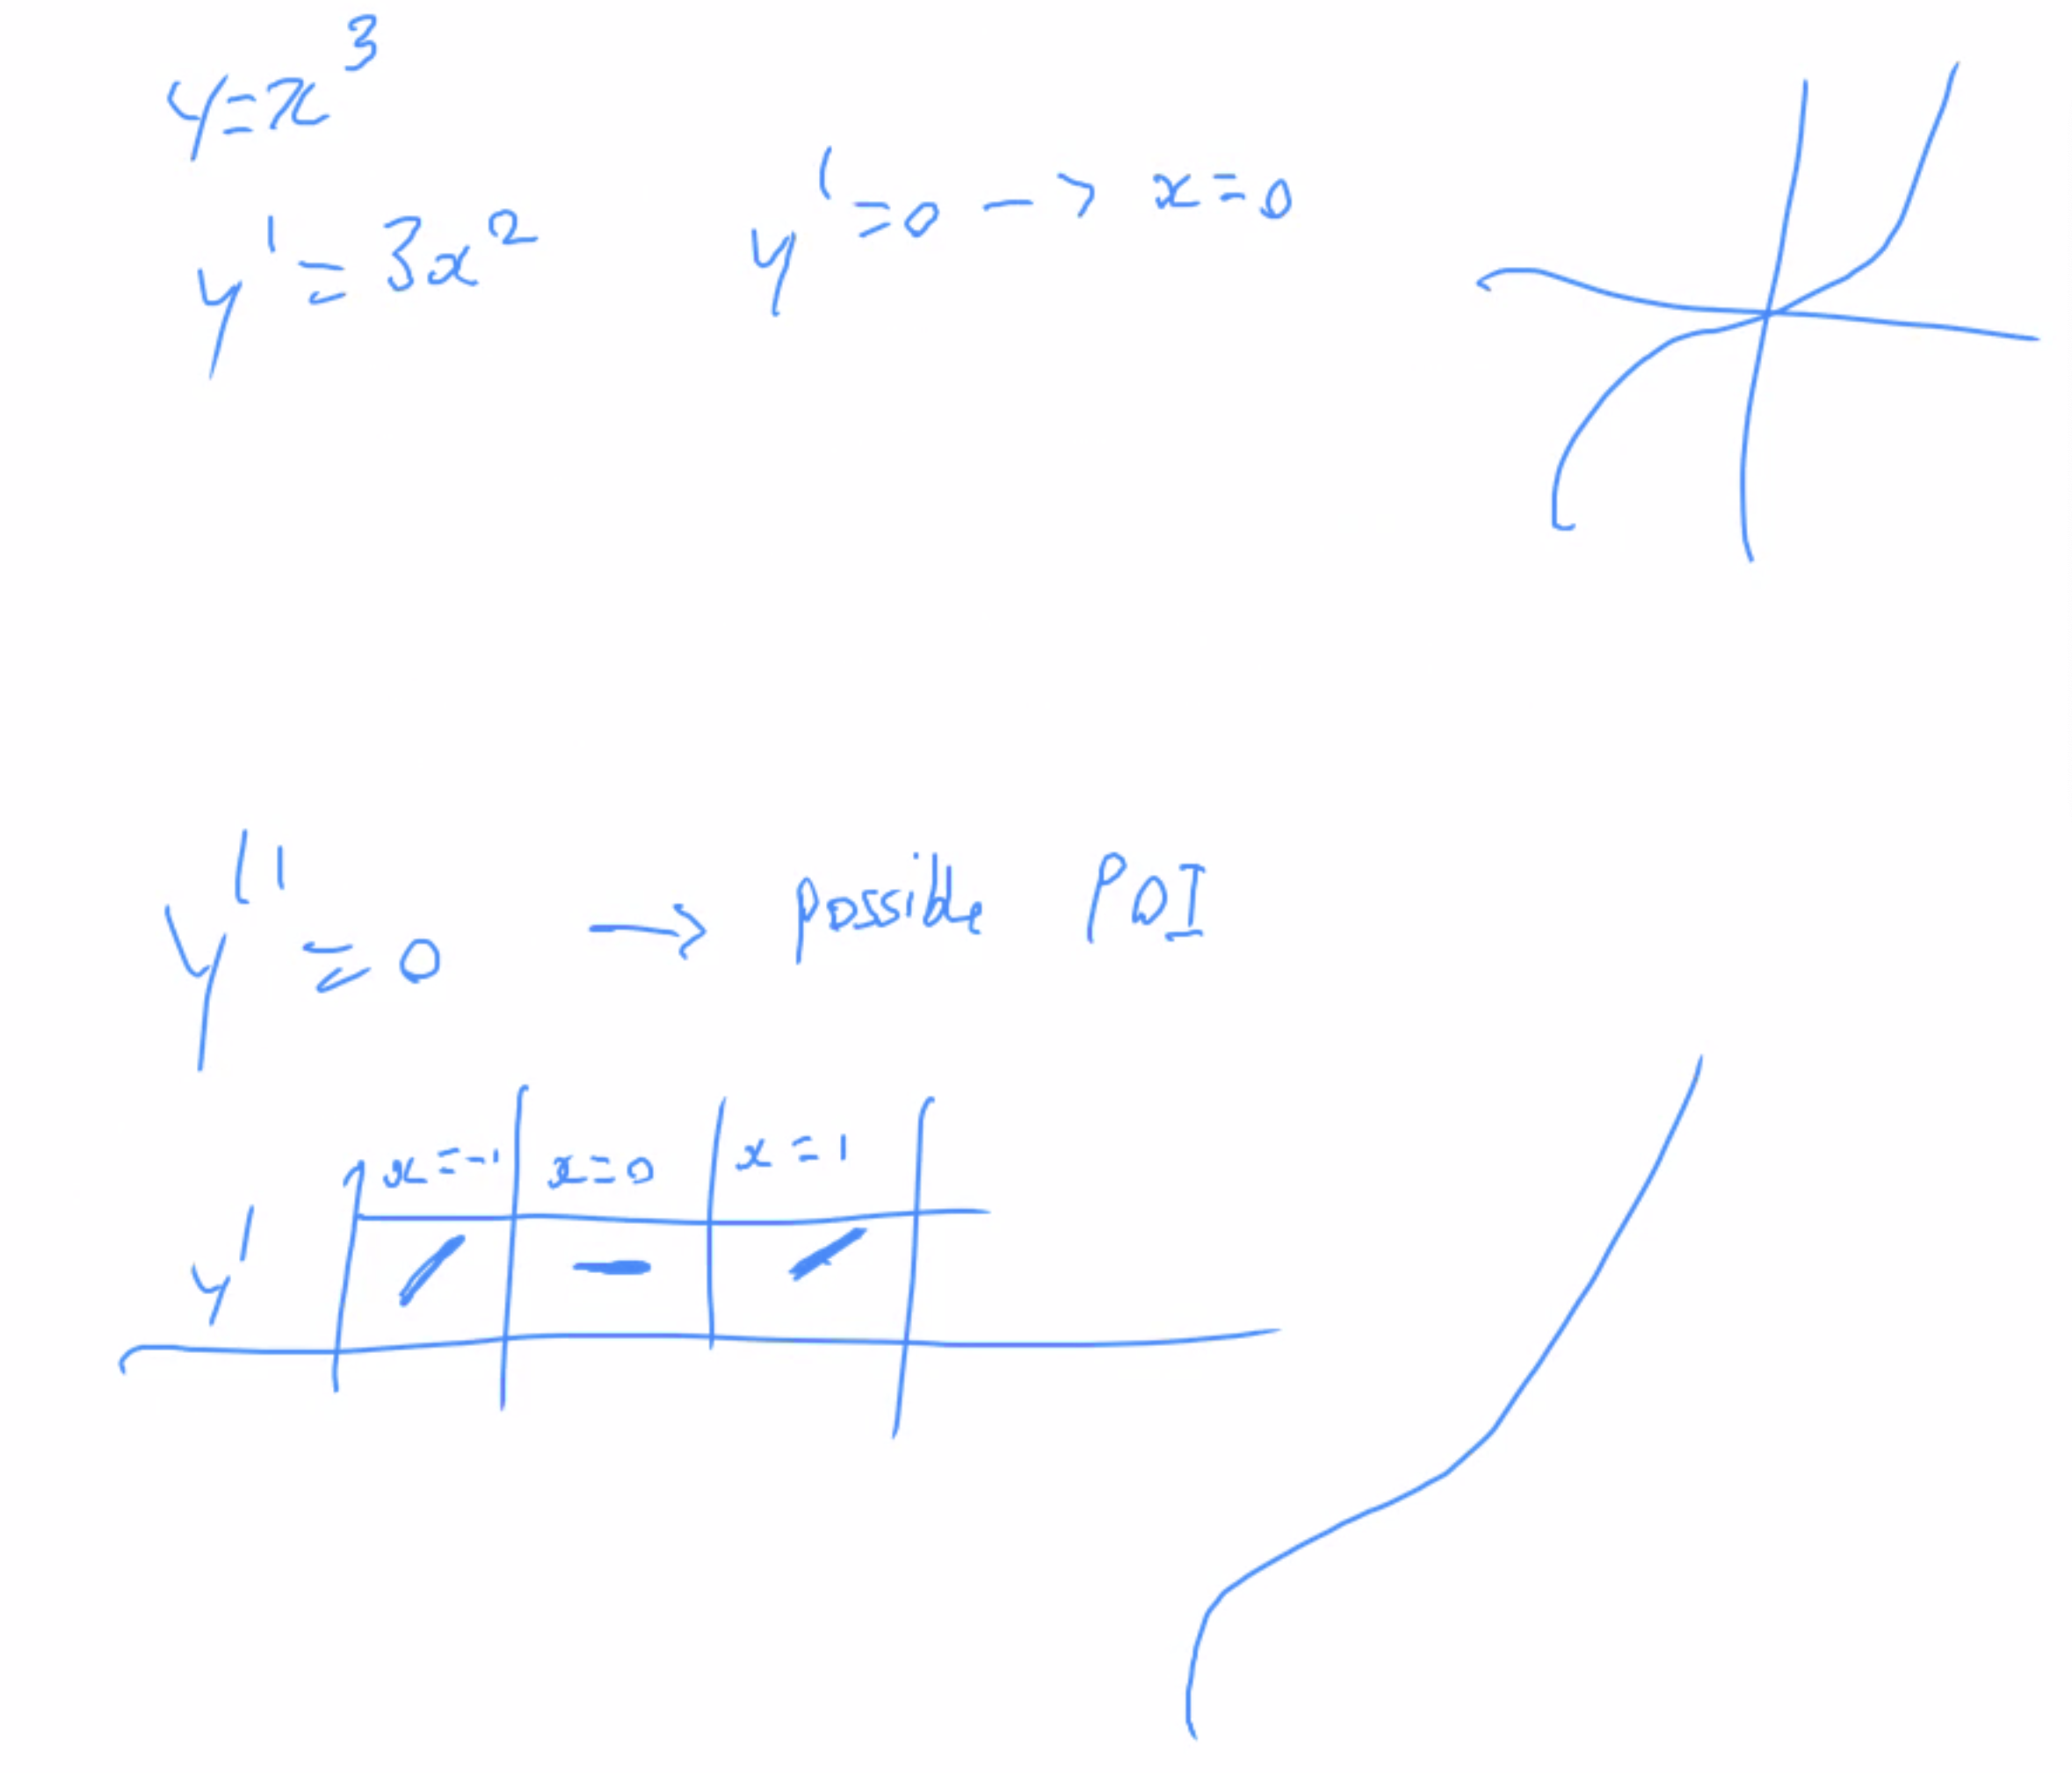 y=x³
y'=3x² y'=0 → x=0
y''=0 → possible POI
x=-1 x=0 x=1
y'